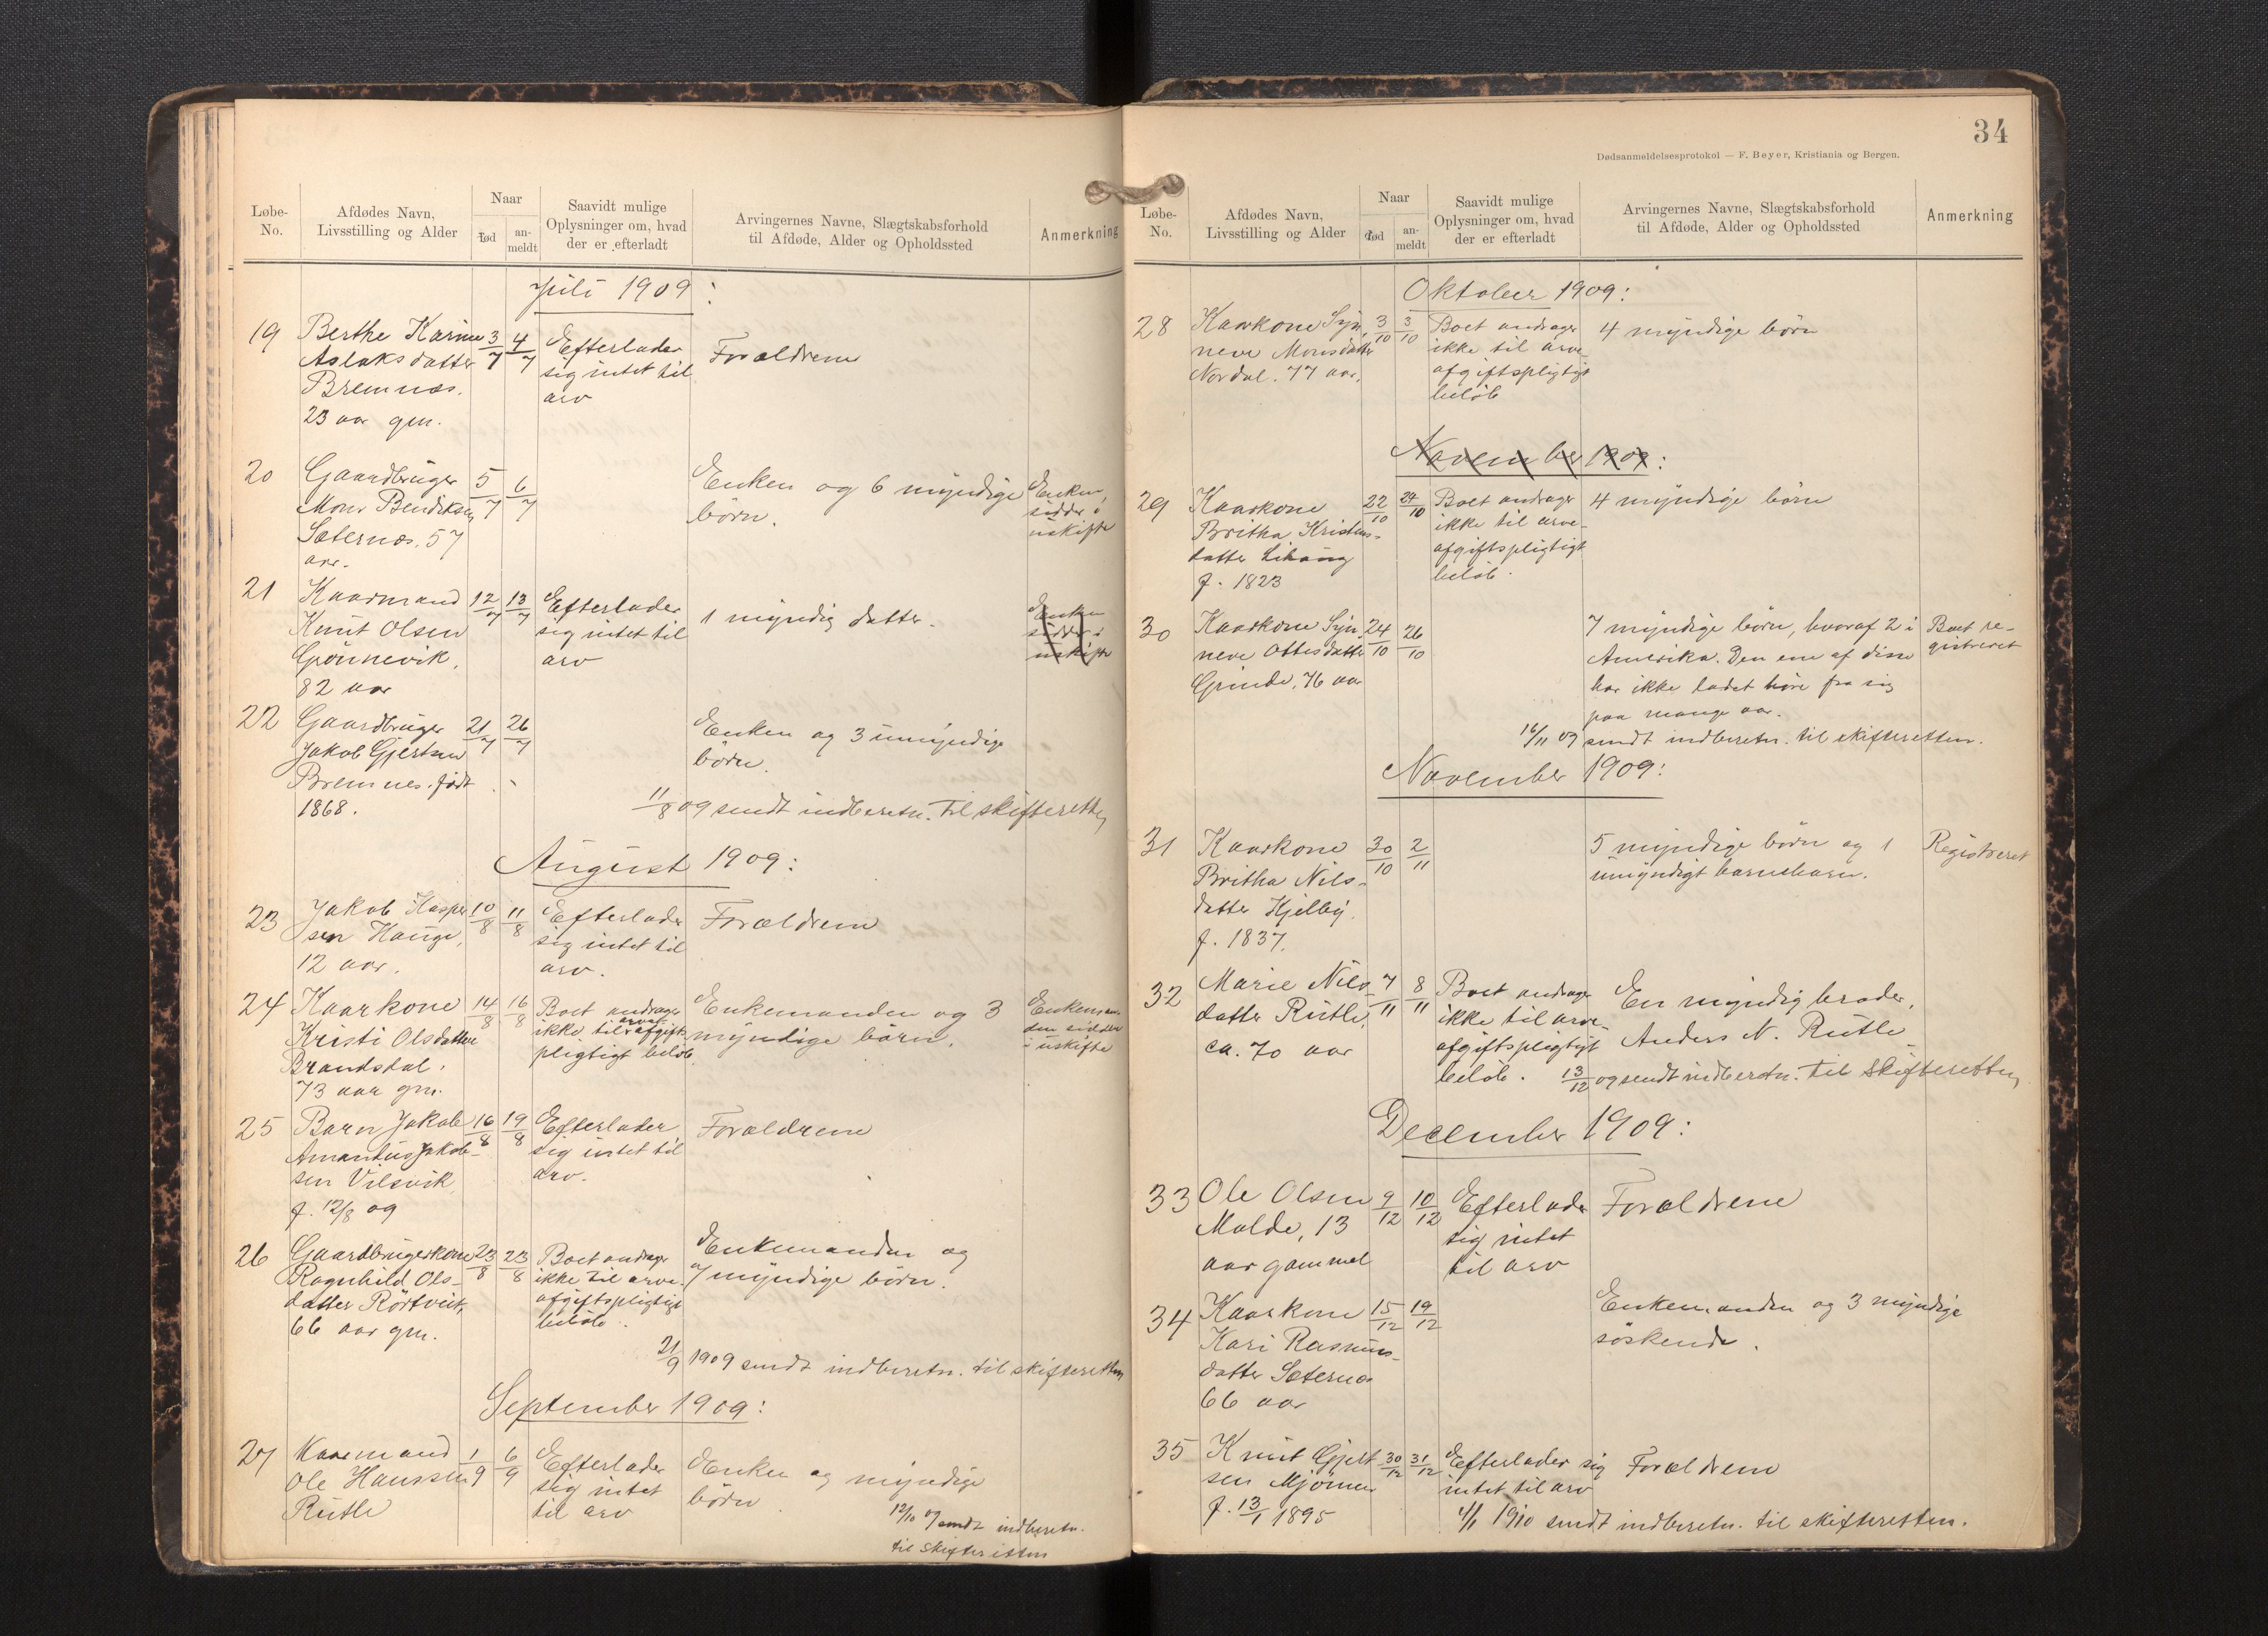 Løbe-No.
Afdødes Navn, Livsstilling og Alder
Naar
død
an-meldt
Saavidt mulige Oplysninger om, hvad der er efterladt
Arvingernes Navne, Slægtskabsforhold til Afdøde, Alder og Opholdssted
Anmerkning
Juli 1909:
19
Berthe Karine
Aslaksdatter
Bremnæs.
23 aar gm.
3/7
4/7
Efterlader
sig intet til
arv
Forældrene
20
Gaardbruger
Mons Bendiksen
Sæternæs, 57
aar.
5/7
6/7
Enken og 6 myndige
børn.
Enken
sidder i
uskifte
21
Kaarmand
Knut Olsen
Grønnevik,
82 aar
12/7
13/7
Efterlader
sig intet til
arv
1 myndig datter.
Enken
sidder i
uskifte
22
Gaardbruger
Jakob Gjertsen
Bremnes. født
1868.
21/7
26/7
Enken og 3 umyndige
børn.
11/8 09 sendt indberetn. til skifteretten
August 1909:
23
Jakob Kasper
sen Hauge,
12 aar.
10/8
11/8
Efterlader
sig intet til
arv.
Forældrene
24
Kaarkone
Kristi Olsdatter
Brandsdal.
73 aar gm.
14/8
16/8
Boet andrager
ikke til arve afgifts
pligtigt beløb
Enkemanden og 3
myndige børn.
Enkeman
den sidder
i uskifte
25
Barn Jakob
Amantius Jakob-
sen Vilsvik
f. 12/8 09
16/8
19/8
Efterlader
sig intet til
arv.
Forældrene
26
Gaardbrugerkone
Ragnhild Ols-
datter Rørtveit,
66 aar gm.
23/8
23/8
Boet andrager
ikke til arve-
afgiftspligtigt
beløb.
Enkemanden og
7 myndige børn.
21/9 1909 sendt indberetn. til skifteretten
September 1909:
27
Kaarmand
Ole Hanssen
Rutle
1/9
6/9
Efterlader
sig intet
til arv
Enken og myndige
børn
12/10 09 sendt indberetn.
til skifteretten
34
Dødsanmeldelsesprotokol — F. Beyer, Kristiania og Bergen.
Løbe-No.
Afdødes Navn, Livsstilling og Alder
Naar
død
an-meldt
Saavidt mulige Oplysninger om, hvad der er efterladt
Arvingernes Navne, Slægtskabsforhold til Afdøde, Alder og Opholdssted
Anmerkning
Oktober 1909:
28
Kaarkone Syn
neve Monsdatter
Nordal. 77 aar.
3/10
3/10
Boet andrager
ikke til arve-
afgiftspligtigt
beløb
4 myndige børn
November 1909:
29
Kaarkone
Britha Kristens-
datter
f. 1823
22/10
24/10
Boet andrager
ikke til arve-
afgiftspligtigt
beløb.
4 myndige børn
30
Kaarkone Syn
neve Ottesdatter
Grinde, 76 aar
24/10
26/10
7 myndige børn, hvoraf 2 i
Amerika. Den ene af disse
har ikke ladet høre fra sig
paa mange aar.
Boet re-
gistreret
16/11 09 sendt indberetn. til skifteretten.
November 1909:
31
Kaarkone
Britha Nils-
datter Kjelby.
f. 1837.
30/10
2/11
5 myndige børn og 1
umyndigt barnebarn.
Registreret
32
Marie Nils
datter Rutle,
ca. 70 aar
7/11
8/11
Boet andrager
ikke til arve-
afgiftspligtigt
beløb.
En myndig broder,
Anders N. Rutle
13/12 09 sendt indberetn. til skifteretten
December 1909:
33
Ole Olsen
Molde, 13
aar gammel
9/12
10/12
Efterlader
sig intet
til arv
Forældrene
34
Kaarkone
Kari Rasmus-
datter Sæternæs
66 aar
15/12
19/12
Enkemanden og 3 myndige
søskende.
35
Knut Gjert
sen Mjømen
f. 13/1 1895
30/12
31/12
Efterlader sig
intet til arv
Forældrene
1910 sendt indberetn. til skifteretten.